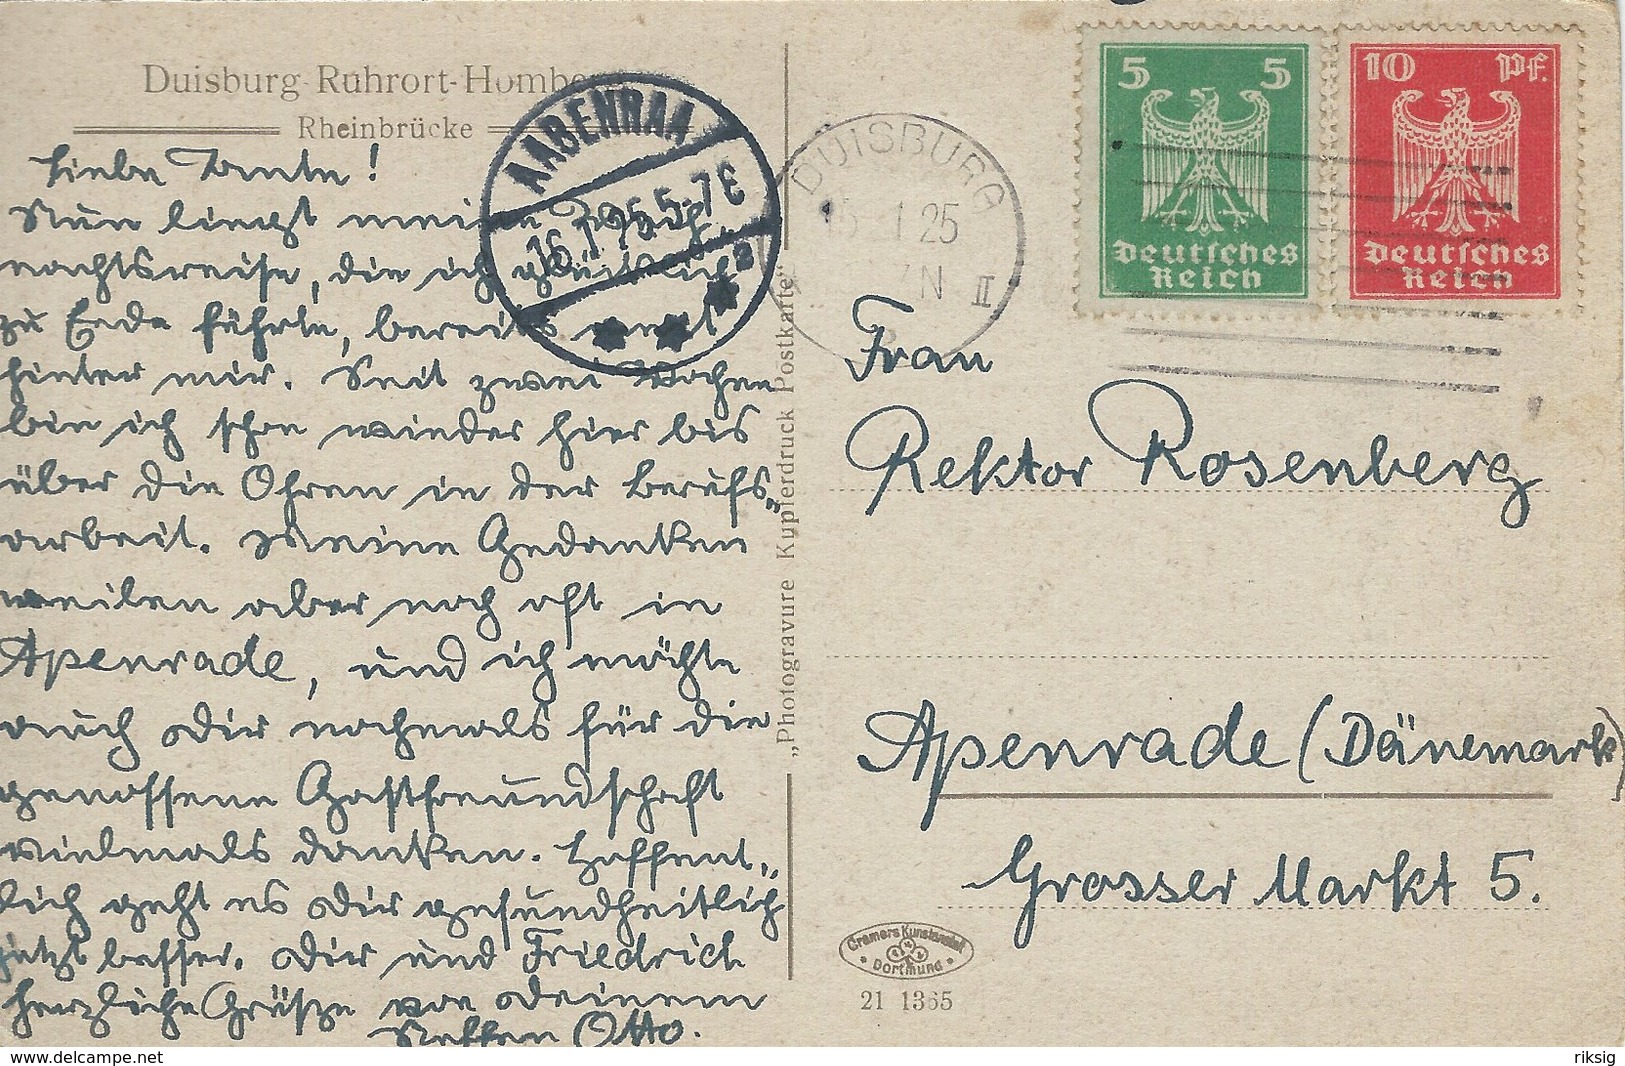 Duisburg-Ruhrort-Homberg
Rheinbrücke
Liebe Tante!
Nun liegt meine Weih-
nachtsreise, die ich glücklich
zu Ende führte, bereits weit
hinter mir. Seit zwei Wochen
bin ich schon wieder hier bis
über die Ohren in der Berufs-
arbeit. Meine Gedanken
weilen aber noch oft in
Apenrade, und ich möchte
auch Dir nochmals für die
genossene Gastfreundschaft
vielmals danken. Hoffent-
lich geht es Dir gesundheitlich
jetzt besser. Dir und Friedrich
herzliche Grüße von Deinem
Neffen Otto.
AABENRAA
16.1.25.5-7E
DUISBURG
1 25
N II
5 5
Deutsches
Reich
10 Pf.
Deutsches
Reich
„Photogravure Kupferdruck Postkarte“
Frau
Rektor Rosenberg
Apenrade (Dänemark)
Grosser Markt 5.
Cramers Kunstanstalt
Dortmund
21 1365
delcampe.net
riksig